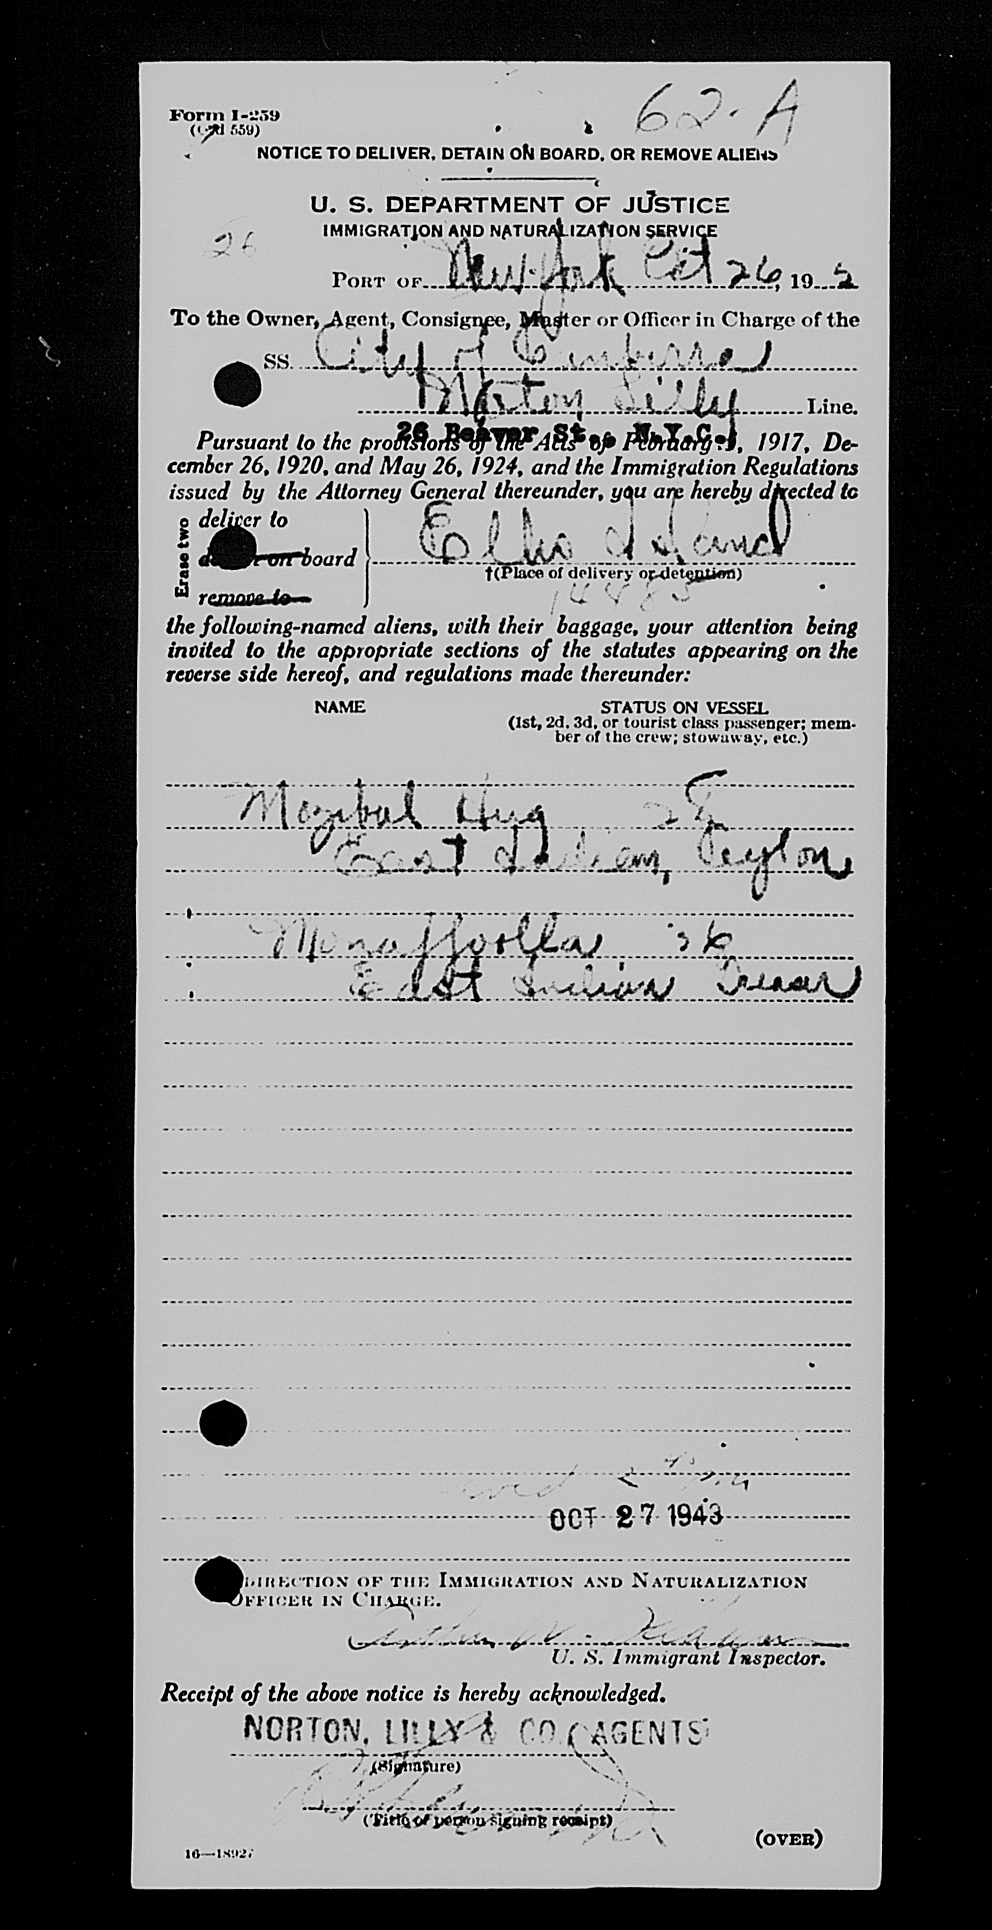 Form I-259
62-A
NOTICE TO DELIVER, DETAIN ON BOARD, OR REMOVE ALIENS
U. S. DEPARTMENT OF JUSTICE
IMMIGRATION AND NATURALIZATION SERVICE
26
PORT OF New York Oct 26, 19
To the Owner, Agent, Consignee, Master or Officer in Charge of the
SS. City of Canberra
Norton Lilly Line.
26 Beaver St., N.Y.C.
Pursuant to the provisions of the Acts of February 5, 1917, De-
cember 26, 1920, and May 26, 1924, and the Immigration Regulations
issued by the Attorney General thereunder, you are hereby directed to
Erase two
deliver to
on board
remove to
Ellis Island
†(Place of delivery or detention)
14885
the following-named aliens, with their baggage, your attention being
invited to the appropriate sections of the statutes appearing on the
reverse side hereof, and regulations made thereunder:
NAME STATUS ON VESSEL
(1st, 2d, 3d, or tourist class passenger; mem-
ber of the crew; stowaway, etc.)
Mozibul Huq 28
East Indian, Ceylon
Mozaffoolla 36
East Indian
OCT 27 1943
DIRECTION OF THE IMMIGRATION AND NATURALIZATION
OFFICER IN CHARGE.
U. S. Immigrant Inspector.
Receipt of the above notice is hereby acknowledged.
NORTON, LILLY & CO. AGENTS
(Signature)
(Title of person signing receipt)
(OVER)
16—18927